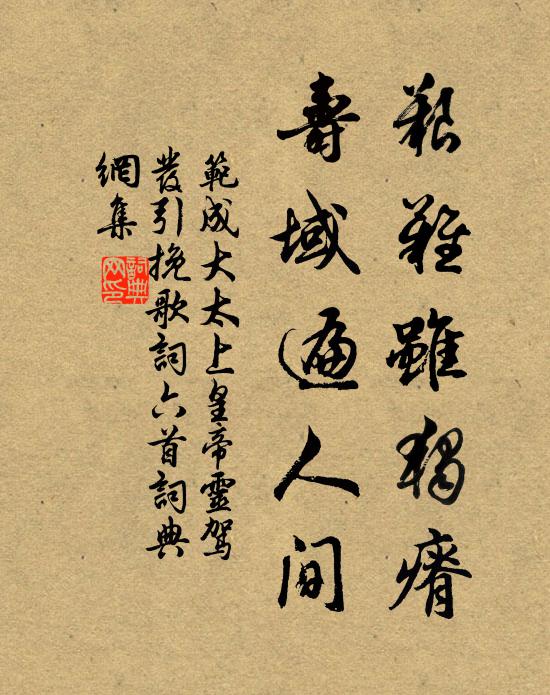 艱難雖獨瘠
壽域遍人間
範成大太上皇帝靈駕
發引挽歌詞六首詞典
網集
詞典
网印